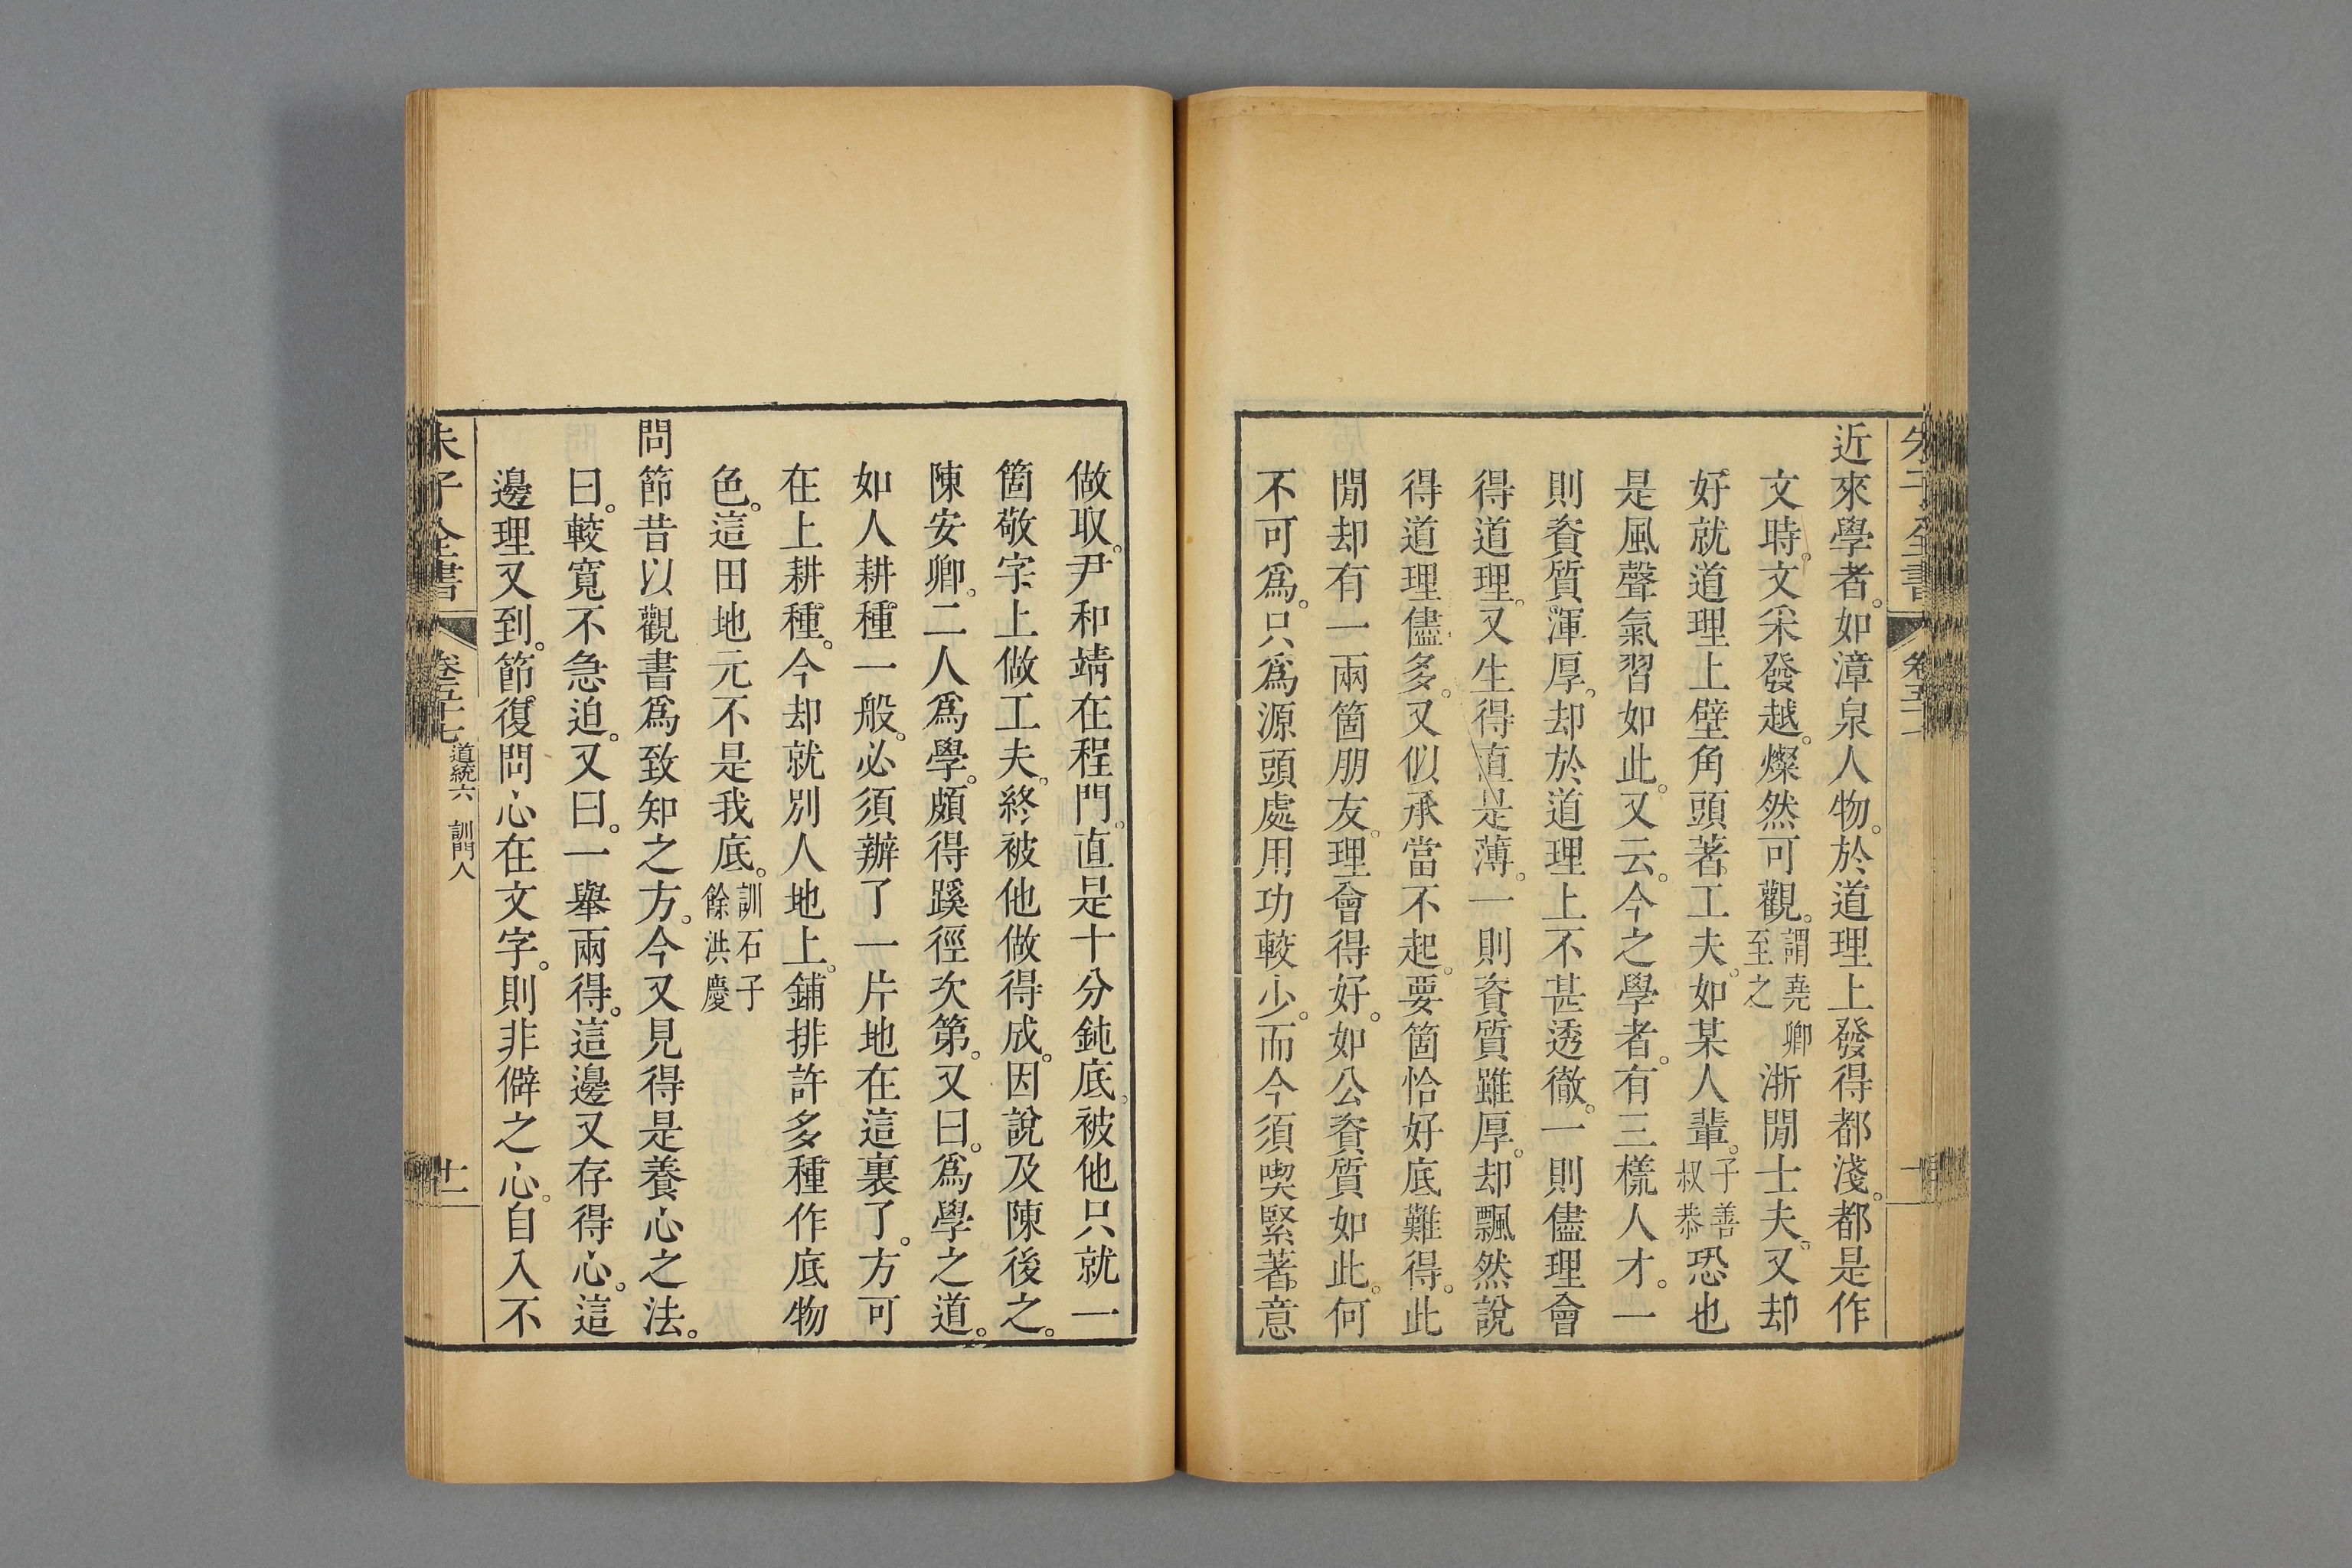 近來學者。如漳泉人物。於道理上發得都淺。都是作
文時。文采發越。燦然可觀。謂堯卿至之浙閒士夫。又却
好就道理上壁角頭著工夫。如某人輩。子善叔恭恐也
是風聲氣習如此。又云。今之學者。有三樣人才。一
則資質渾厚。却於道理上不甚透徹。一則儘理會
得道理。又生得直是薄。一則資質雖厚。却飄然說
得道理儘多。又似承當不起。要箇恰好底難得。此
閒却有一兩箇朋友。理會得好。如公資質如此。何
不可爲。只爲源頭處用功較少。而今須喫緊著意
做取。尹和靖在程門。直是十分鈍底。被他只就一
箇敬字上做工夫。終被他做得成。因說及陳後之。
陳安卿。二人爲學。頗得蹊徑次第。又曰。爲學之道。
如人耕種一般。必須辦了一片地在這裏了。方可
在上耕種。今却就別人地上。鋪排許多種作底物
色。這田地元不是我底。訓石子餘洪慶
問節昔以觀書爲致知之方。今又見得是養心之法。
曰。較寬不急迫。又曰。一舉兩得。這邊又存得心。這
邊理又到。節復問心在文字。則非僻之心。自入不
朱子全書 卷五十七 道統六 訓門人 十二